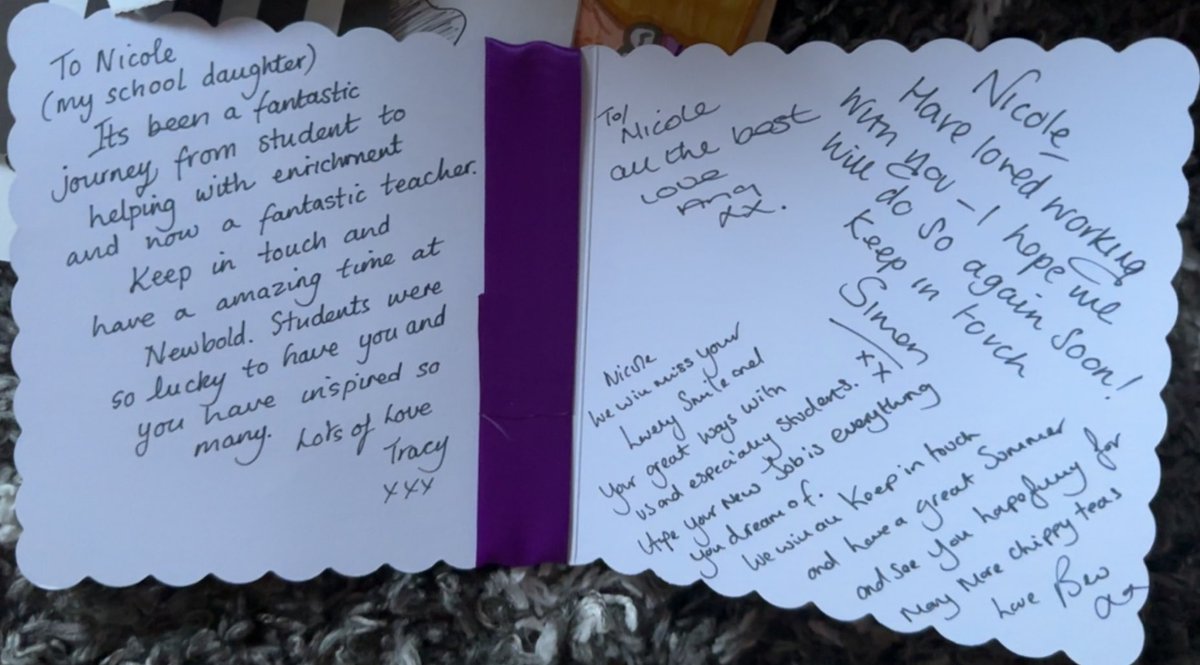 To Nicole
(my school daughter)
Its been a fantastic
journey from student to
helping with enrichment
and now a fantastic teacher.
Keep in touch and
have a amazing time at
Newbold. Students were
so lucky to have you and
you have inspired so
many. Lots of Love
Tracy
xxx
To/
Nicole
all the best
Love
Ang
xx.
Nicole –
Have loved working
with you – I hope we
will do so again soon!
Keep in touch
Simon
xx
Nicole
We will miss your
lovely smile and
your great ways with
us and especially students.
Hope your new job is everything
you dream of.
We will all keep in touch
and have a great summer
and see you hopefully for
many more chippy teas
love Bev
xx